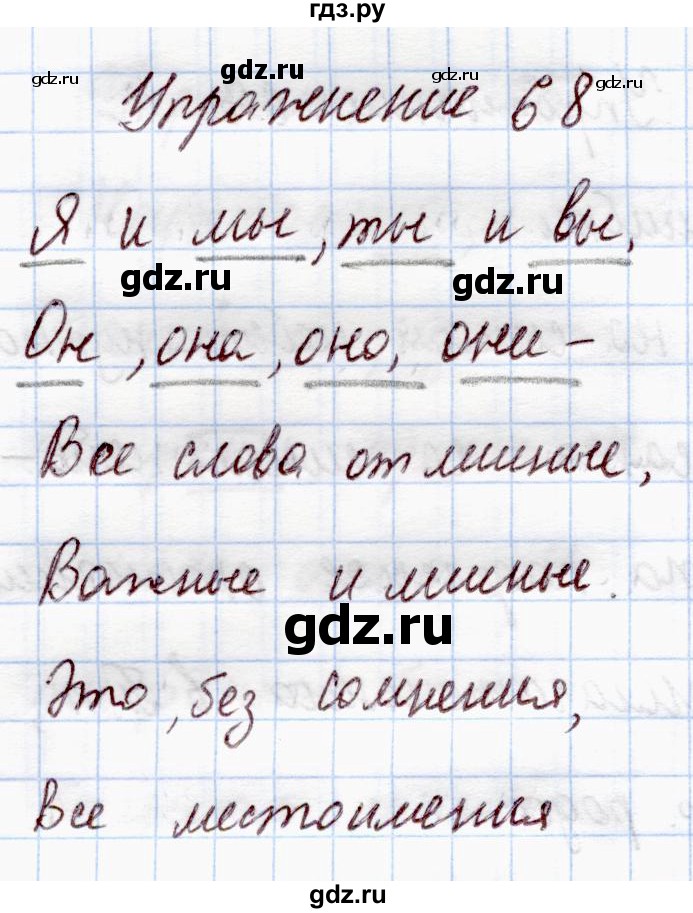 гдз.ру
gdz.ru gdz.ru gdz.ru gdz.ru
Упражнение 68
gdz.ru gdz.ru gdz.ru gdz.ru
Я и мы, ты и вы,
gdz.ru gdz.ru
Он, она, оно, они –
Все слова отличные,
Важные и личные.
gdz.ru
Это, без сомнения,
Все местоимения
gdz.ru